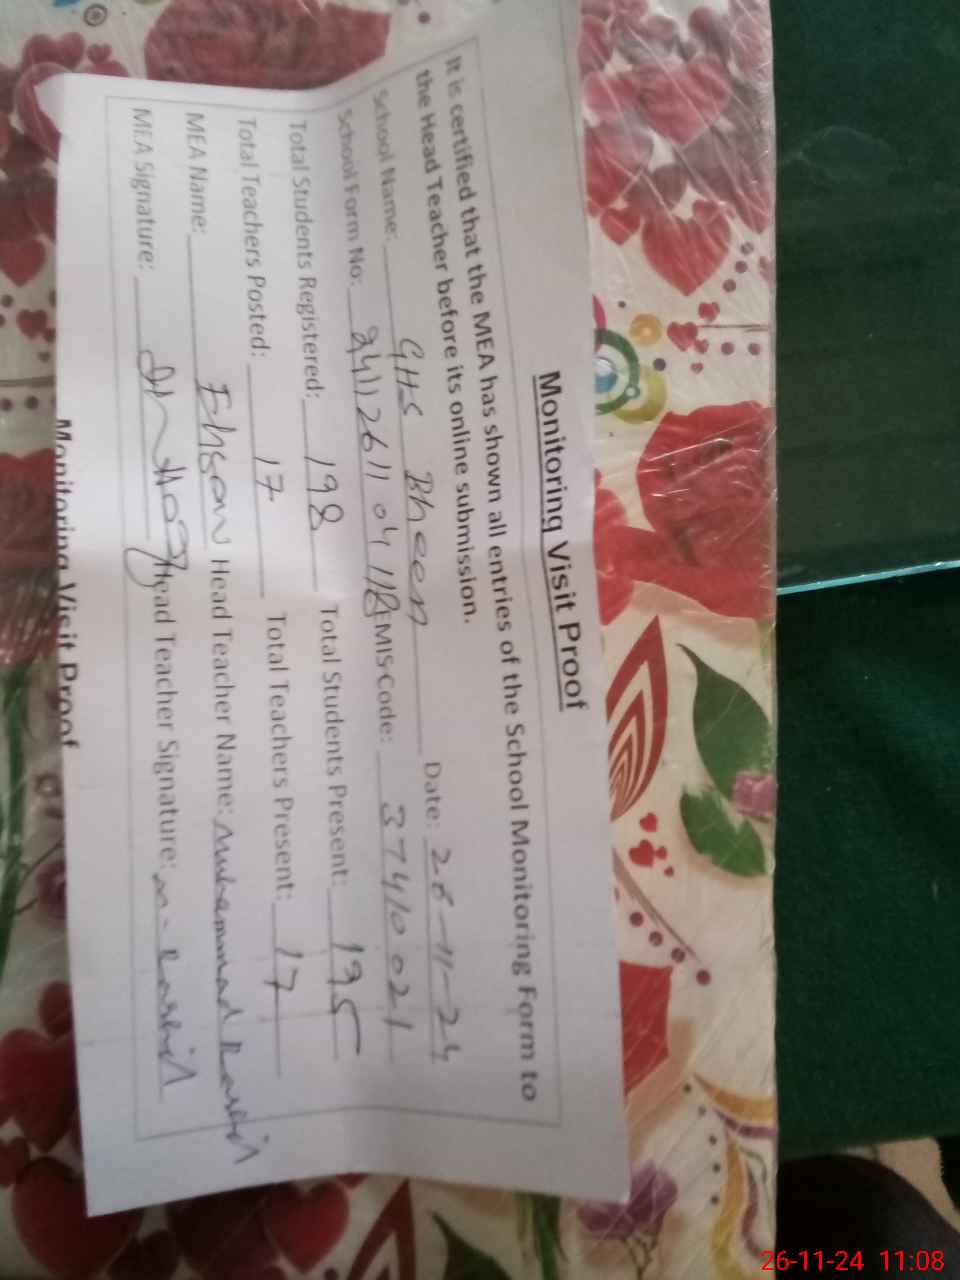 Monitoring Visit Proof
It is certified that the MEA has shown all entries of the School Monitoring Form to
the Head Teacher before its online submission.
School Name: GHS Bhoon Date: 26-11-24
School Form No: 24112611 04118 EMIS Code: 37410021
Total Students Registered: 198 Total Students Present: 195
Total Teachers Posted: 17 Total Teachers Present: 17
MEA Name: Ehsan Head Teacher Name: Muhammad Rashid
MEA Signature: Head Teacher Signature: M-Rashid
Monitoring Visit Proof
26-11-24 11:08